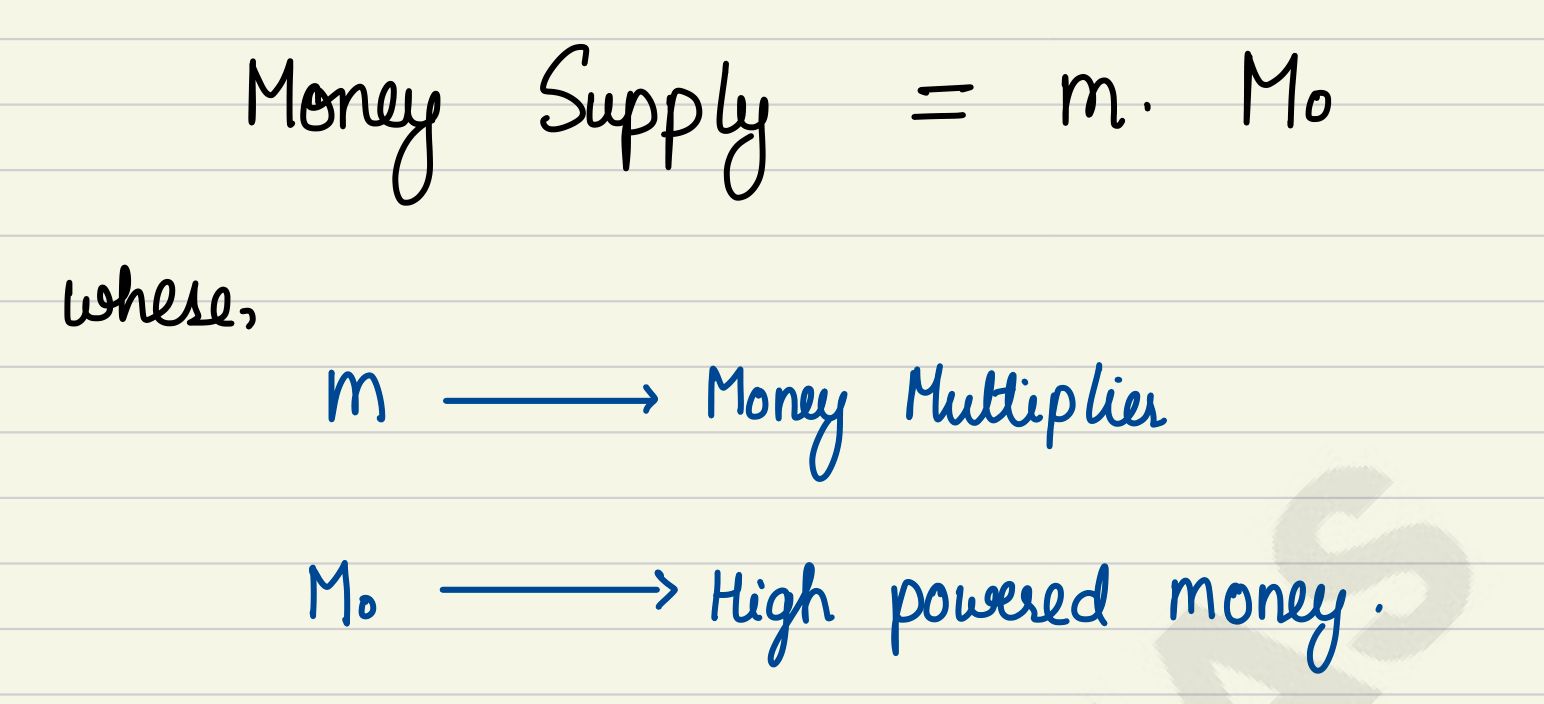 Money Supply = m. Mo
where,
m → Money Multiplier
Mo → High powered money.
AS